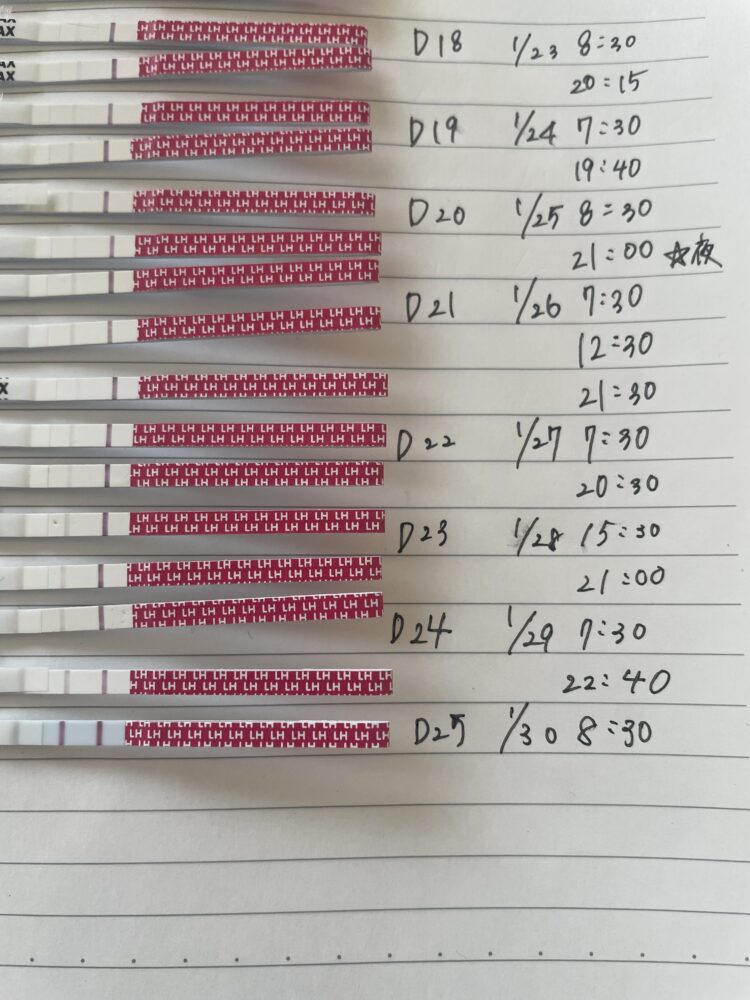 AX
D18 1/23 8:30
AX
AX
20:15
D19 1/24 7:30
19:40
D20 1/25 8:30
21:00 ☆夜
D21 1/26 7:30
12:30
X
21:30
D22 1/27 7:30
20:30
D23 1/28 15:30
21:00
D24 1/29 7:30
22:40
D25 1/30 8:30
LH LH LH LH LH LH LH LH LH LH